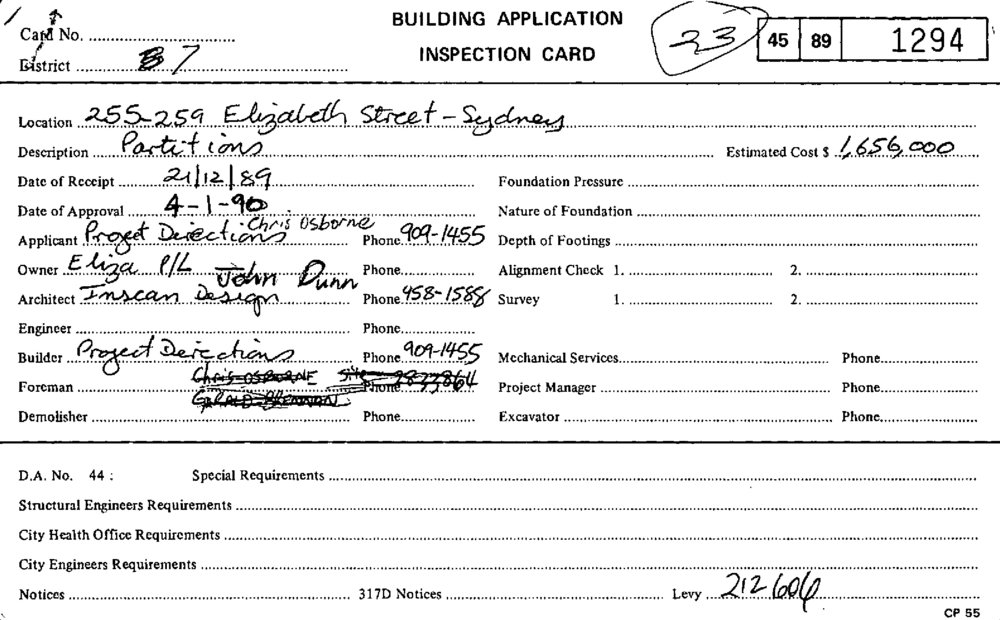 BUILDING APPLICATION
Card No. 23 45 89 1294
INSPECTION CARD
District B 7
Location 255-259 Elizabeth Street - Sydney
Description Partitions Estimated Cost $ 1,656,000
Date of Receipt 21/12/89 Foundation Pressure
Date of Approval 4-1-90 Nature of Foundation
Chris Osborne
Applicant Project Directions Phone 909-1455 Depth of Footings
Owner Eliza P/L John Dunn Phone Alignment Check 1. 2.
Architect Inscan Design Phone 958-1588 Survey 1. 2.
Engineer Phone
Builder Project Directions Phone 909-1455 Mechanical Services Phone
Foreman Chris OSBORNE Site Phone 2833864 Project Manager Phone
GERALD BRENNAN
Demolisher Phone Excavator Phone
D.A. No. 44 : Special Requirements
Structural Engineers Requirements
City Health Office Requirements
City Engineers Requirements
Notices 317D Notices Levy 212606
CP 55